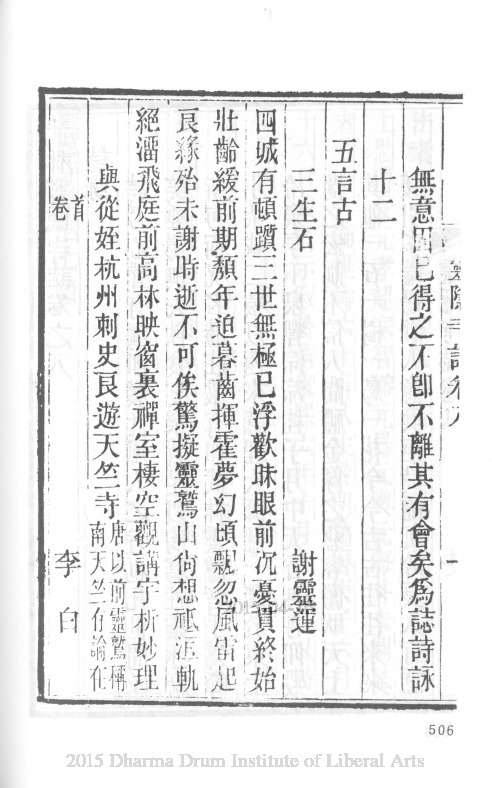 靈隱寺誌卷八 一
無意固已得之不卽不離其有會矣爲誌詩詠
十二
五言古
三生石 謝靈運
四城有頓躓三世無極已浮歡昧眼前沉憂貫終始
壯齡緩前期頹年迫暮齒揮霍夢幻頃飄忽風雷起
良緣殆未謝時逝不可俟驚擬靈鷲山尙想祗洹軌
絕溜飛庭前高林映窗裏禪室棲空觀講宇析妙理
與從姪杭州刺史良遊天竺寺 李白
唐以前靈鷲稱
南天竺有論在
首
卷
506
2015 Dharma Drum Institute of Liberal Arts